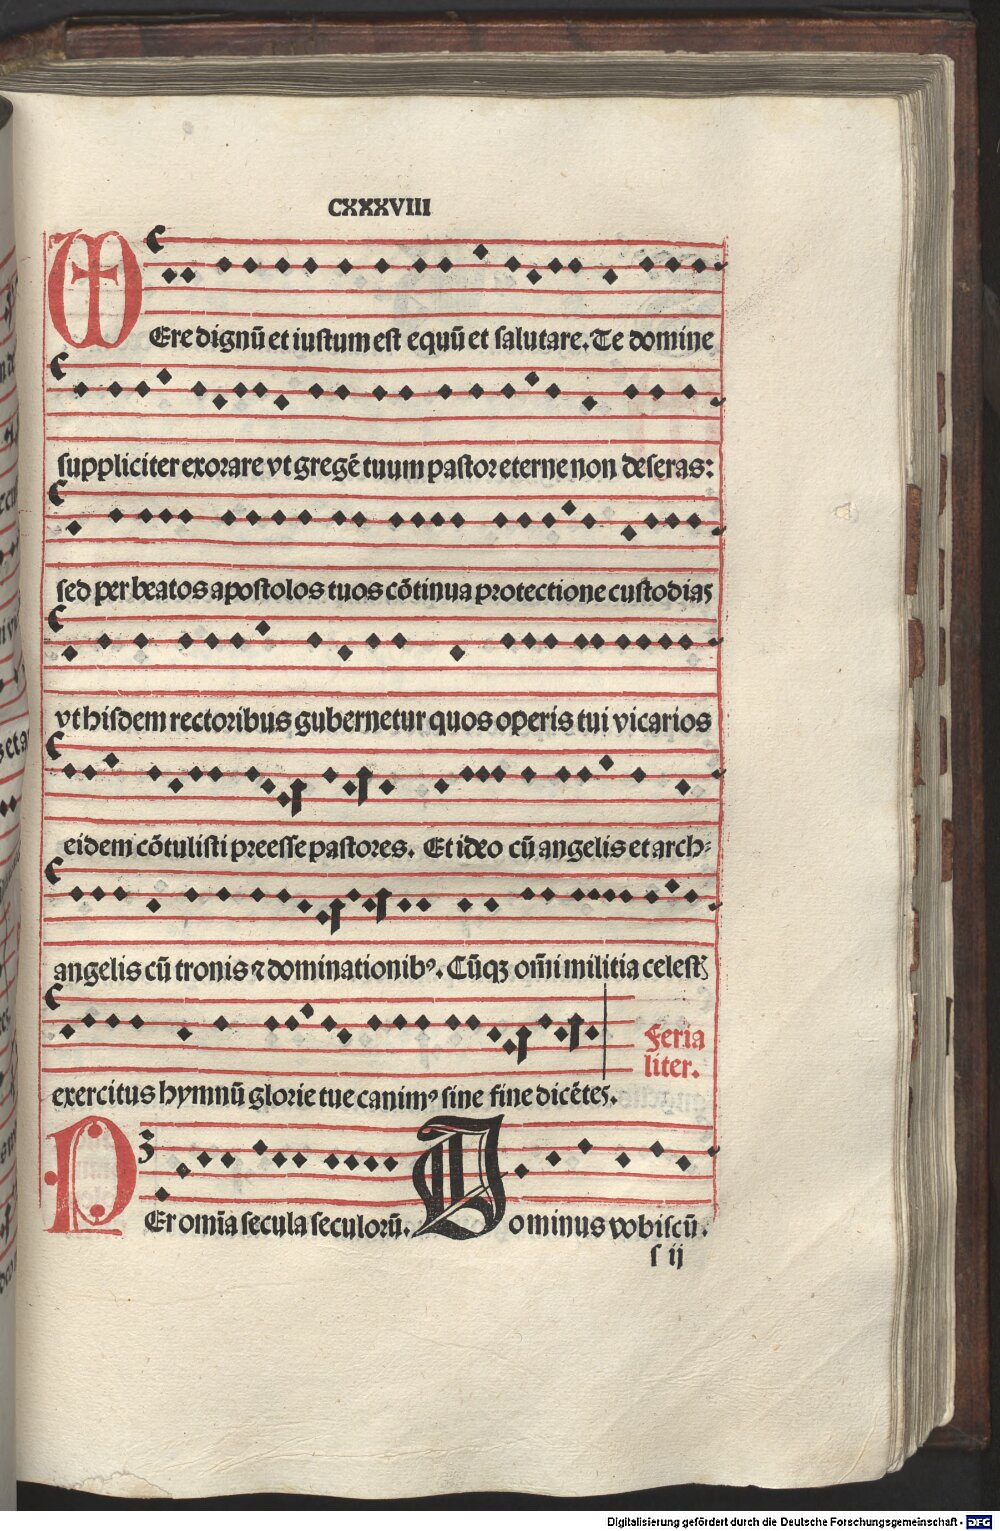 CXXXVIII
VEre dignū et iustum est equū et salutare. Te domine
suppliciter exorare vt gregē tuum pastor eterne non deseras:
sed per beatos apostolos tuos cōtinua protectione custodias
vt hisdem rectoribus gubernetur quos operis tui vicarios
eidem cōtulisti preesse pastores. Et ideo cū angelis et arch⸗
angelis cū tronis ⁊ dominationibꝰ. Cūqꝫ om̄i militia celestꝭ
Feria
liter.
exercitus hymnū glorie tue canimꝰ sine fine dicētes.
PEr om̄ia secula seculorū. Dominus vobiscū.
s ij
Digitalisierung gefördert durch die Deutsche Forschungsgemeinschaft - DFG